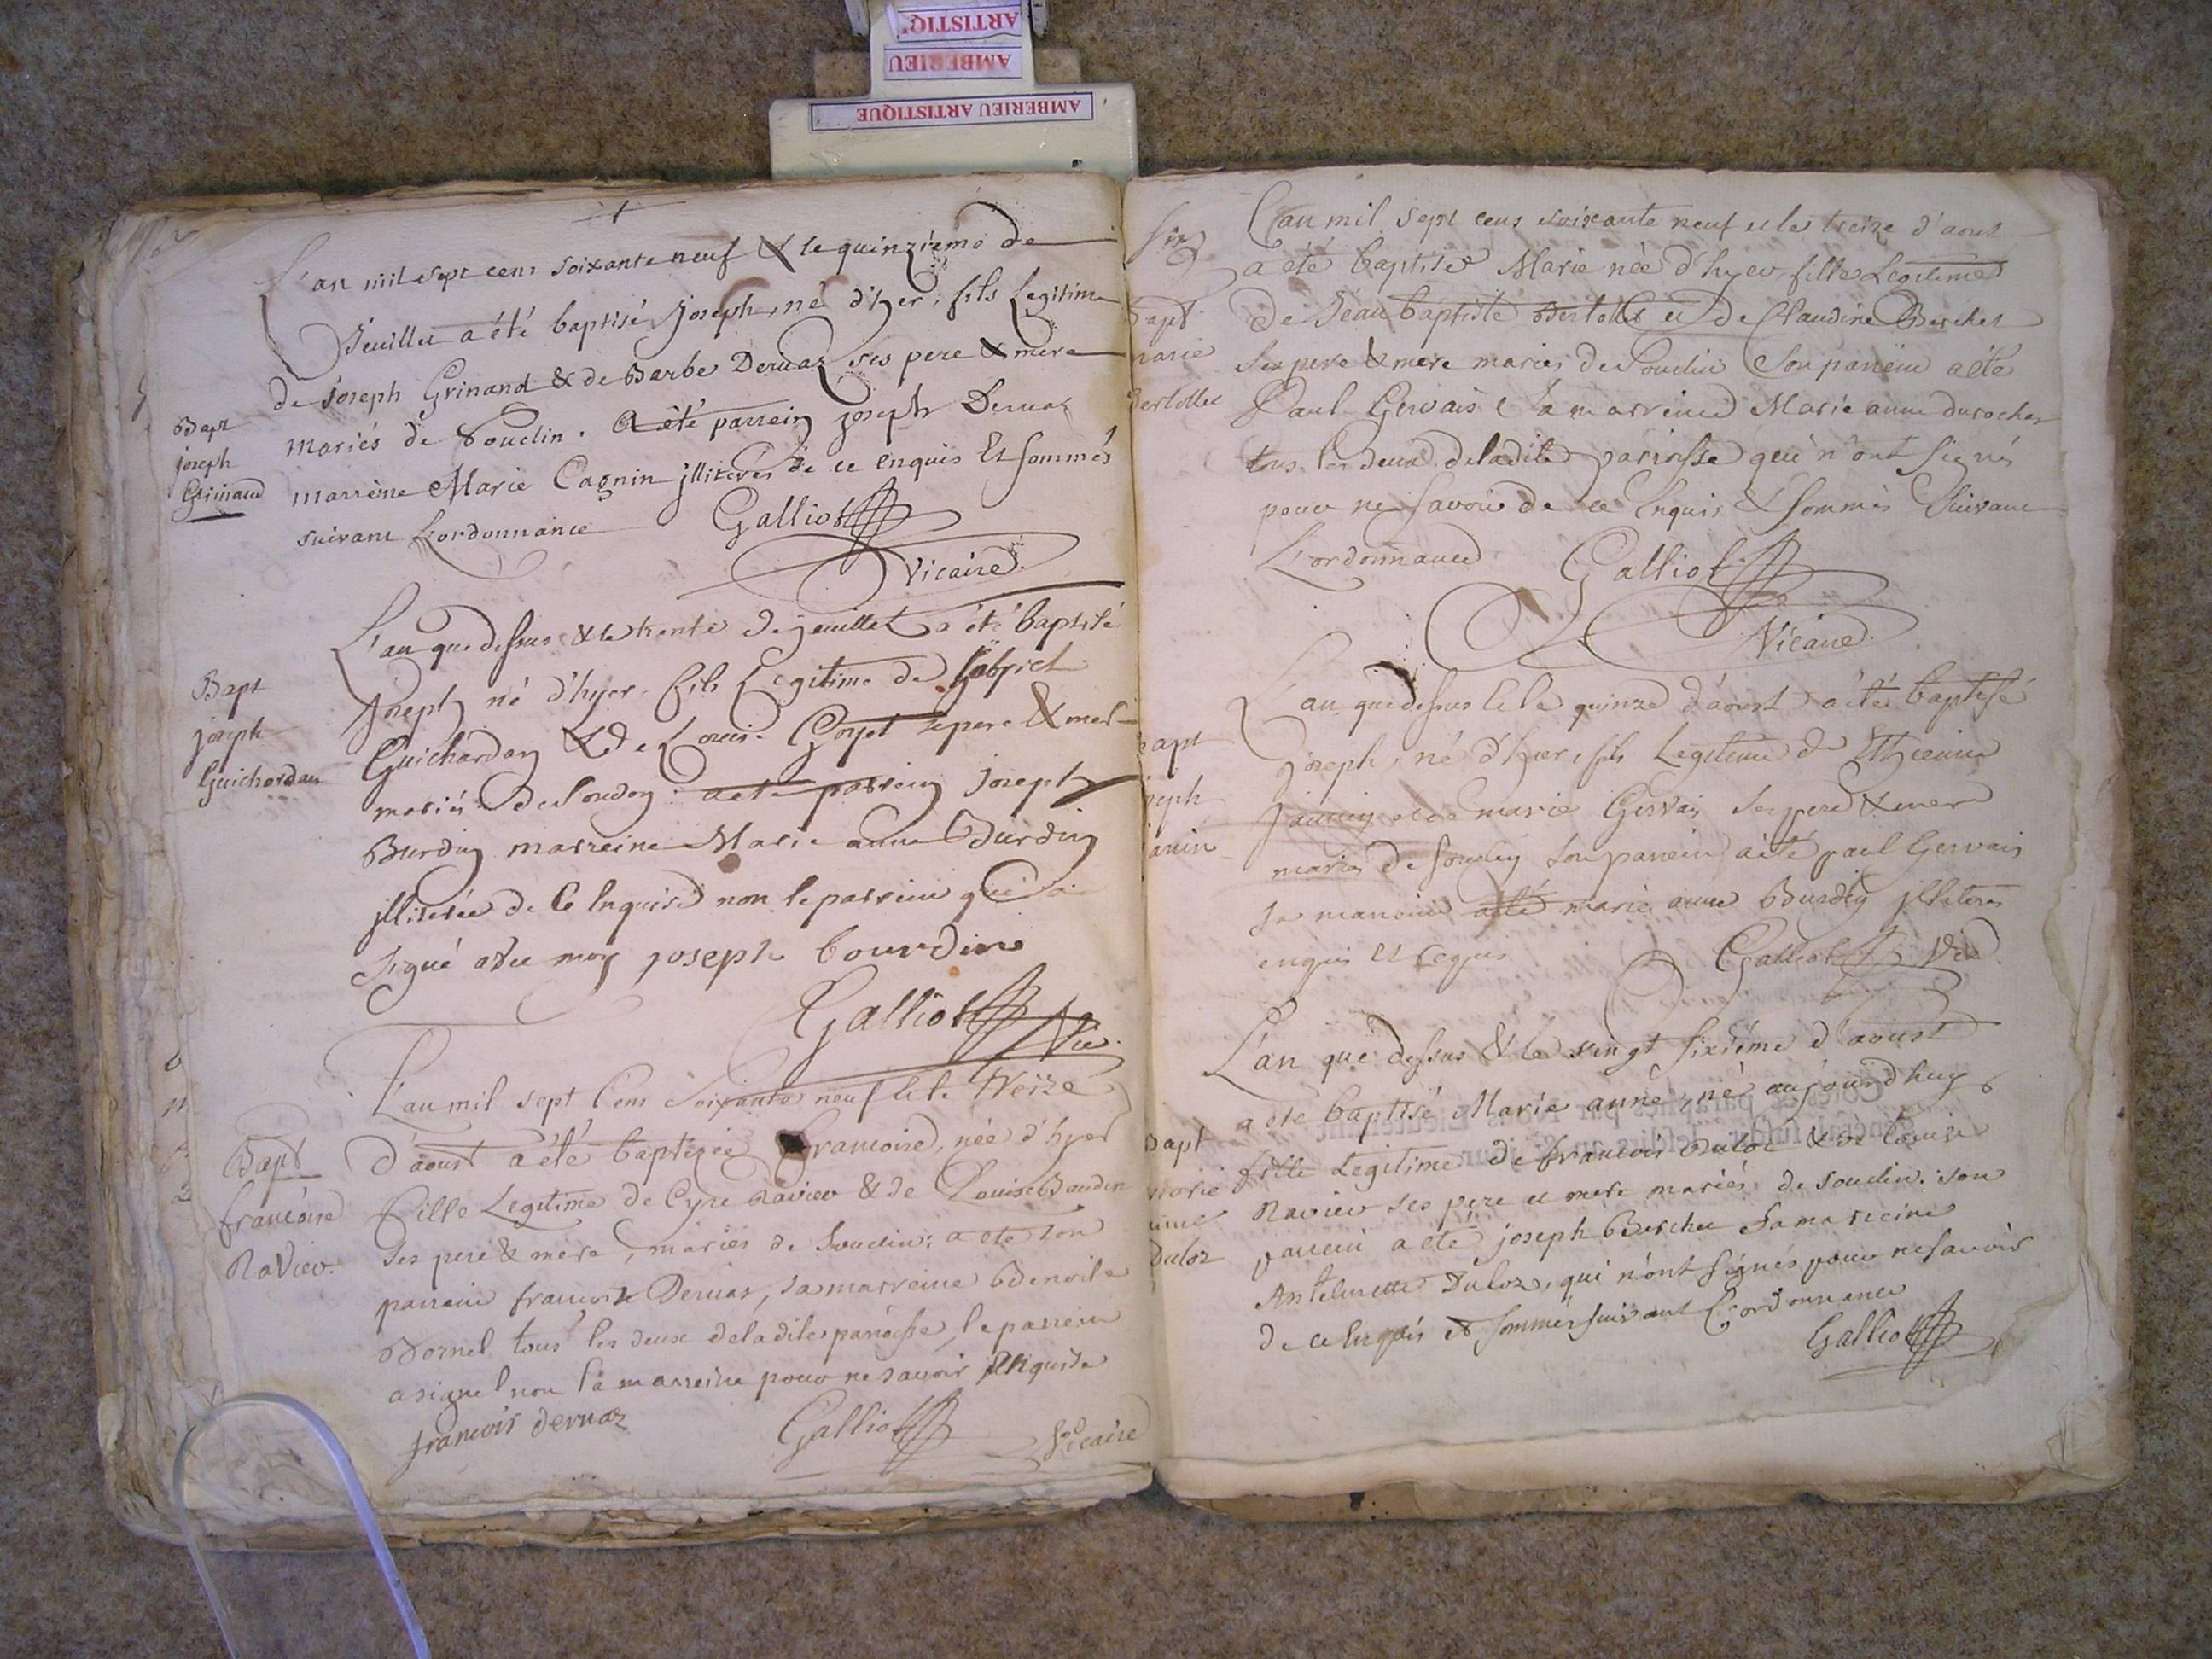 ARTISTIQ
AMBERIEU
AMBERIEU ARTISTIQUE
L'an mil sept cens soixante neuf & le quinziéme de
Jeuillet a été baptisé joseph, né d'hyer, fils Legitime
de joseph Grinand & de Barbe Dervaz ses pere & mere
mariés de Souclin. A été parrein joseph Dervaz
marrèine Marie Cagnin jlliterés de ce enquis Et sommés
suivant L'ordonnance Galliot
Vicaire
Bapt
joseph
Grinand
L'an que dessus & le trente de jeuillet a été baptisé
joseph né d'hyer fils Legitime de gabriel
Guichardan & de Louise Goyet se pere & mere
mariés de Soudon a été parrein joseph
Burdin marreine Marie anne Burdin
jlliterée de Ce Enquise non le parrein qui a
signé avec moy joseph bourdin
Galliot Vic.
Bapt
joseph
Guichardan
L'an mil sept Cens Soixante neuf & le treize
d'aoust a été baptizée francoise, née d'hyer
fille Legitime de Cyre Ravier & de Louise Baudin
ses pere & mere, mariés de Souclin: a eté son
parrein francois Dervaz, sa marreine Benoite
Bornel tous les deux de la dite paroisse, le parrein
a signé non la marreine pour ne savoir Enquise
francois dervaz Galliot Vicaire
Bapt
francoise
Ravier.
six
L'an mil sept cens soixante neuf et le treize d'aout
a été baptisée Marie née d'hyer, fille Légitime
de Jean baptiste Bertollet et de Claudine Berchet
ses pere & mere mariés de Souclin Son parrein a été
Paul Gervais & la marreine Marie anne durochat
tous les deux de ladite parroisse qui n'ont signés
pour ne savoir de ce Enquis & sommés Suivant
L'ordonnance Galliot
Vicaire
bapt
marie
bertollet
L'an que dessus & le quinze d'aoust a été baptisé
joseph, né d'hyer, fils Legitime d'Ethienne
jannin et de marie Gervais ses pere & mere
mariés de Souclin son parrein a été paul Gervais
sa marreine a été marie anne Burdin jlliterés
enquis et requis Galliot Vic.
bapt
joseph
janin
L'an que dessus & le vingt sixiéme d'aoust
a été baptisé Marie anne, né aujourd'huy
fille Legitime de francois Duloz & de Louise
Ravier ses pere et mere mariés de souclin: son
parrein a été joseph Berchet sa marreine
Anthelmette Duloz, qui n'ont signés pour ne savoir
de ce Enquis & sommés suivant L'ordonnance
Galliot
bapt
marie
anne
Duloz